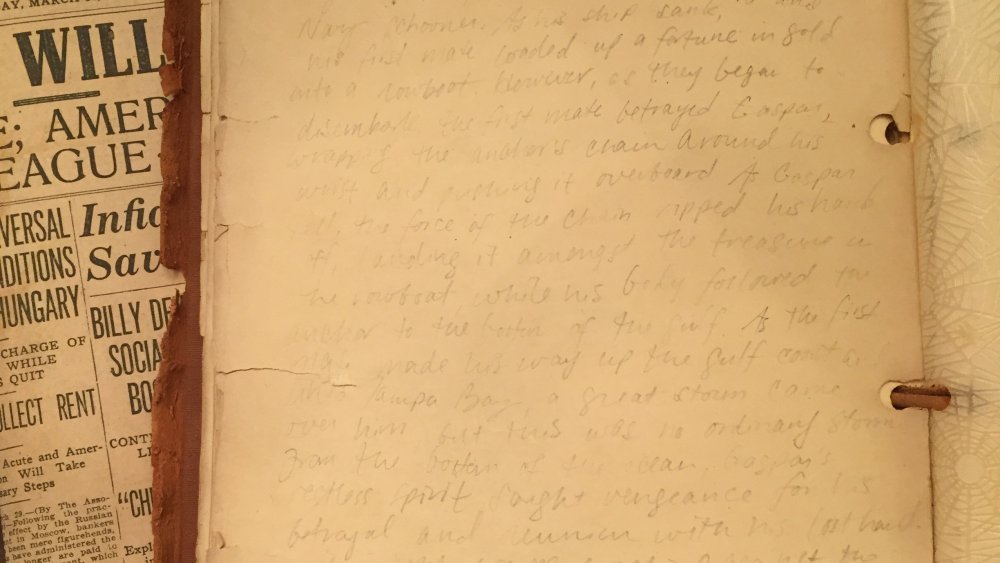 AY, MARCH
WILL
E; AMER
EAGUE
VERSAL
NDITIONS
HUNGARY
CHARGE OF
WHILE
S QUIT
LLECT RENT
Acute and Amer-
n Will Take
ary Steps
ch 29.—(By The Asso-
—Following the prac-
effect by the Russian
nt in Moscow, bankers
been mere figureheads,
have administered the
onger are paid to
ment, which
Infic
Sav
BILLY DE
SOCIA
BO
CONT
LI
"CH
Expl
Navy schooner. As his ship sank, and
his first mate loaded up a fortune in gold
into a rowboat. However, as they began to
disembark, the first mate betrayed Gaspar,
wrapping the anchor's chain around his
wrist and pushing it overboard As Gaspar
fell, the force of the chain ripped his hand
off, landing it amongst the treasure in
the rowboat, while his body followed the
anchor to the bottom of the gulf. As the first
mate made his way up the gulf coast &
into Tampa Bay, a great storm came
over him but this was no ordinary storm
From the bottom of the ocean, Gaspar's
restless spirit sought vengeance for his
betrayal and reunion with his lost hand.
the